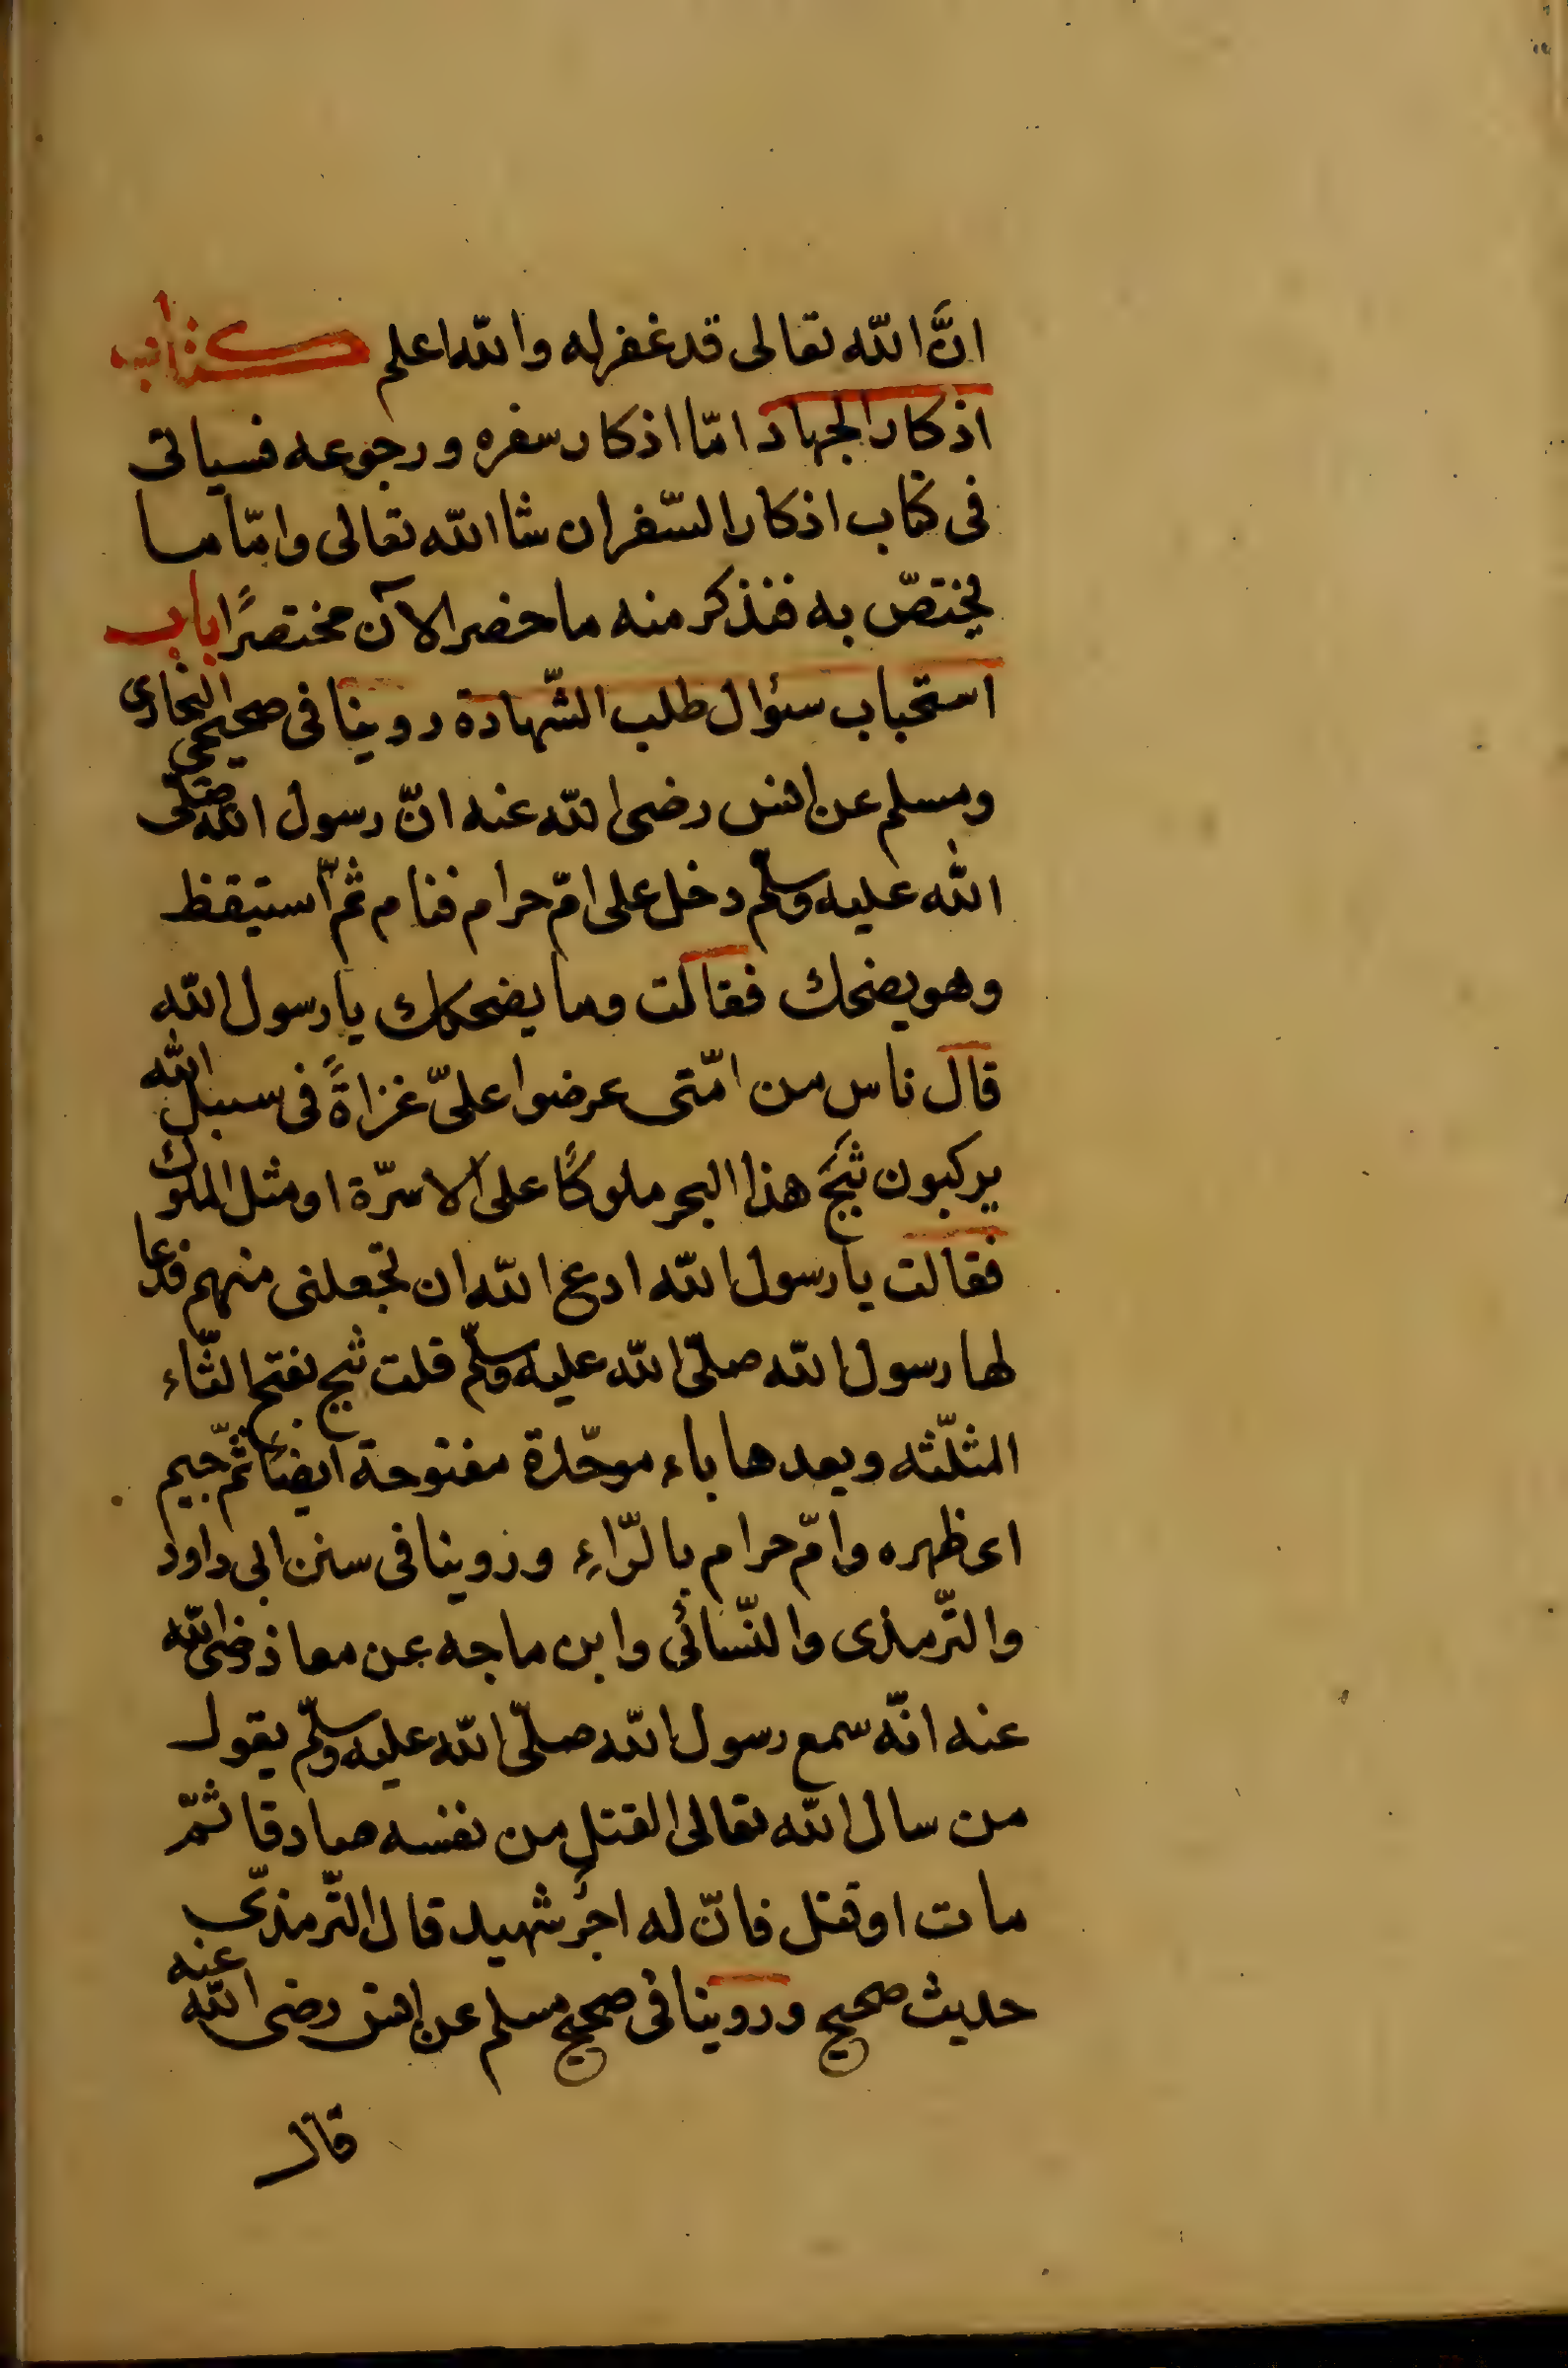 انَّ الله تعالى قد غفر له والله اعلم كتاب
اذكار الجهاد امّا اذكار سفره ورجوعه فسياتى
فى كتاب اذكار السّفر ان شا الله تعالى وامّا ما
يختصّ به فنذكر منه ما حضر الآن مختصرًا باب
استحباب سئوال طلب الشّهادة روينا فى صحيحى البخارى
ومسلم عن انس رضى الله عنه انّ رسول الله صلّى
الله عليه وسلّم دخل على امّ حرام فنام ثمّ استيقظ
وهو يضحك فقالت وما يضحكك يا رسول الله
قال ناس من امّتى عرضوا علىّ غزاةً فى سبيل الله
يركبون ثَبَجَ هذا البحر ملوكًا على الاسرّة او مثل الملوك
فقالت يا رسول الله ادع الله ان يجعلنى منهم فدعا
لها رسول الله صلّى الله عليه وسلّم قلت ثبج بفتح الثّاء
المثلّثه وبعدها باء موحّدة مفتوحة ايضًا ثمّ جيم
اى ظهره وامّ حرام بالرّاءِ وروينا فى سنن ابى داود
والتّرمذى والنّسائى وابن ماجه عن معاذ رضى الله
عنه انّه سمع رسول الله صلّى الله عليه وسلّم يقول
من سال الله تعالى القتل من نفسه صادقا ثمّ
مات او قتل فانّ له اجر شهيد قال التّرمذىّ
حديث صحيح وروينا فى صحيح مسلم عن انس رضى الله عنه
قال